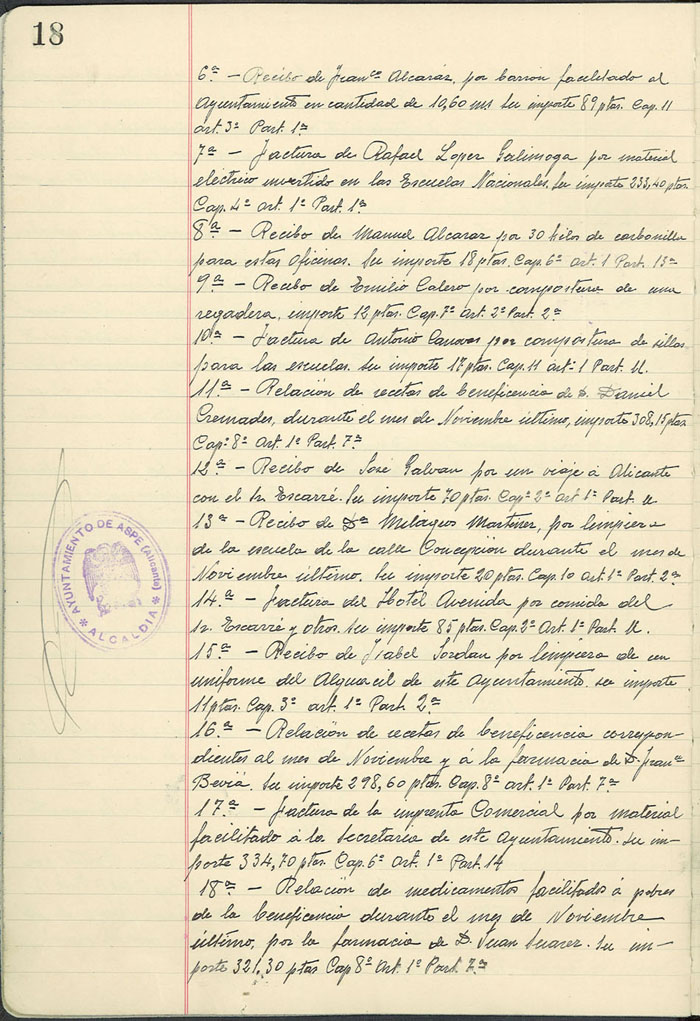 18
6ª - Recibo de Franco Alcaráz, por carrón facilitado al
Ayuntamiento en cantidad de 10,60 ms su importe 89 ptas. Cap. 11
art. 3º Part. 1ª
7ª - Factura de Rafael Lopez Galinsoga por material
eléctrico invertido en las Escuelas Nacionales. Su importe 233,40 ptas.
Cap. 4º art. 1º Part. 1ª
8ª - Recibo de Manuel Alcaraz por 30 kilos de carbonilla
para estas oficinas. Su importe 18 ptas. Cap. 6º art. 1 Part. 13ª
9ª - Recibo de Emilio Calero por compostura de una
regadera, importe 12 ptas. Cap. 7º Art. 2º Part. 2ª
10ª - Factura de Antonio Canovas por compostura de sillas
para las escuelas. Su importe 17 ptas. Cap. 11 art. 1 Part. U.
11ª - Relación de recetas de beneficencia de D. Daniel
Cremades, durante el mes de Noviembre último, importe 308,15 ptas.
Cap. 8º Art. 1º Part. 7ª
12ª - Recibo de José Galvan por un viaje á Alicante
con el Sr. Escarré. Su importe 70 ptas. Capº 2º art 1º Part. U
13ª - Recibo de Dª Milagros Martinez, por limpieza
de la escuela de la calle Concepción durante el mes de
Noviembre último. Su importe 20 ptas. Cap. 10 Art. 1º Part. 2ª
14ª - Factura del Hotel Avenida por comida del
Sr. Escarré y otros. Su importe 85 ptas. Cap. 2º Art. 1º Part. U.
15ª - Recibo de Isabel Jordan por limpieza de un
uniforme del Alguacil de este Ayuntamiento. su importe
11 ptas. Cap. 3º art. 1º Part. 2ª
16ª - Relación de recetas de beneficencia correspon-
dientes al mes de Noviembre y á la farmacia de D. Franco
Beviá. Su importe 298,60 ptas. Cap. 8º art. 1º Part. 7ª
17ª - Factura de la imprenta Comercial por material
facilitado á la Secretaria de este Ayuntamiento. Su im-
porte 334,70 ptas. Cap. 6º Art. 1º Part. 14
18ª - Relación de medicamentos facilitado á pobres
de la beneficencia durante el mes de Noviembre
último, por la farmacia de D. Juan Suarez. Su im-
porte 321,30 ptas Cap 8º Art. 1º Part. 7ª
AYUNTAMIENTO DE ASPE (Alicante)
* ALCALDIA *